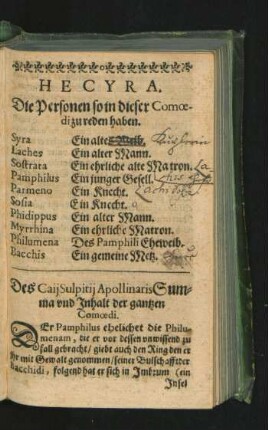 HECYRA.
Die Personen so in dieser Comœ-
di zu reden haben.
Syra Ein alte Weib.
Laches Ein alter Mann.
Sostrata Ein ehrliche alte Matron.
Pamphilus Ein junger Gesell.
Parmeno Ein Knecht.
Sosia Ein Knecht.
Phidippus Ein alter Mann.
Myrrhina Ein ehrliche Matron.
Philumena Des Pamphili Eheweib.
Bacchis Ein gemeine Metz.
Des Caij Sulpitij Apollinaris Sum-
ma vnd Inhalt der gantzen
Comœdi.
DEr Pamphilus ehelichet die Philu-
menam, die er vor dessen vnwissend zu
fall gebracht / giebt auch den Ring den er
jhr mit Gewalt genommen / seiner Bulschafft der
Bacchidi, folgend hat er sich in Imbrum (ein
Insel